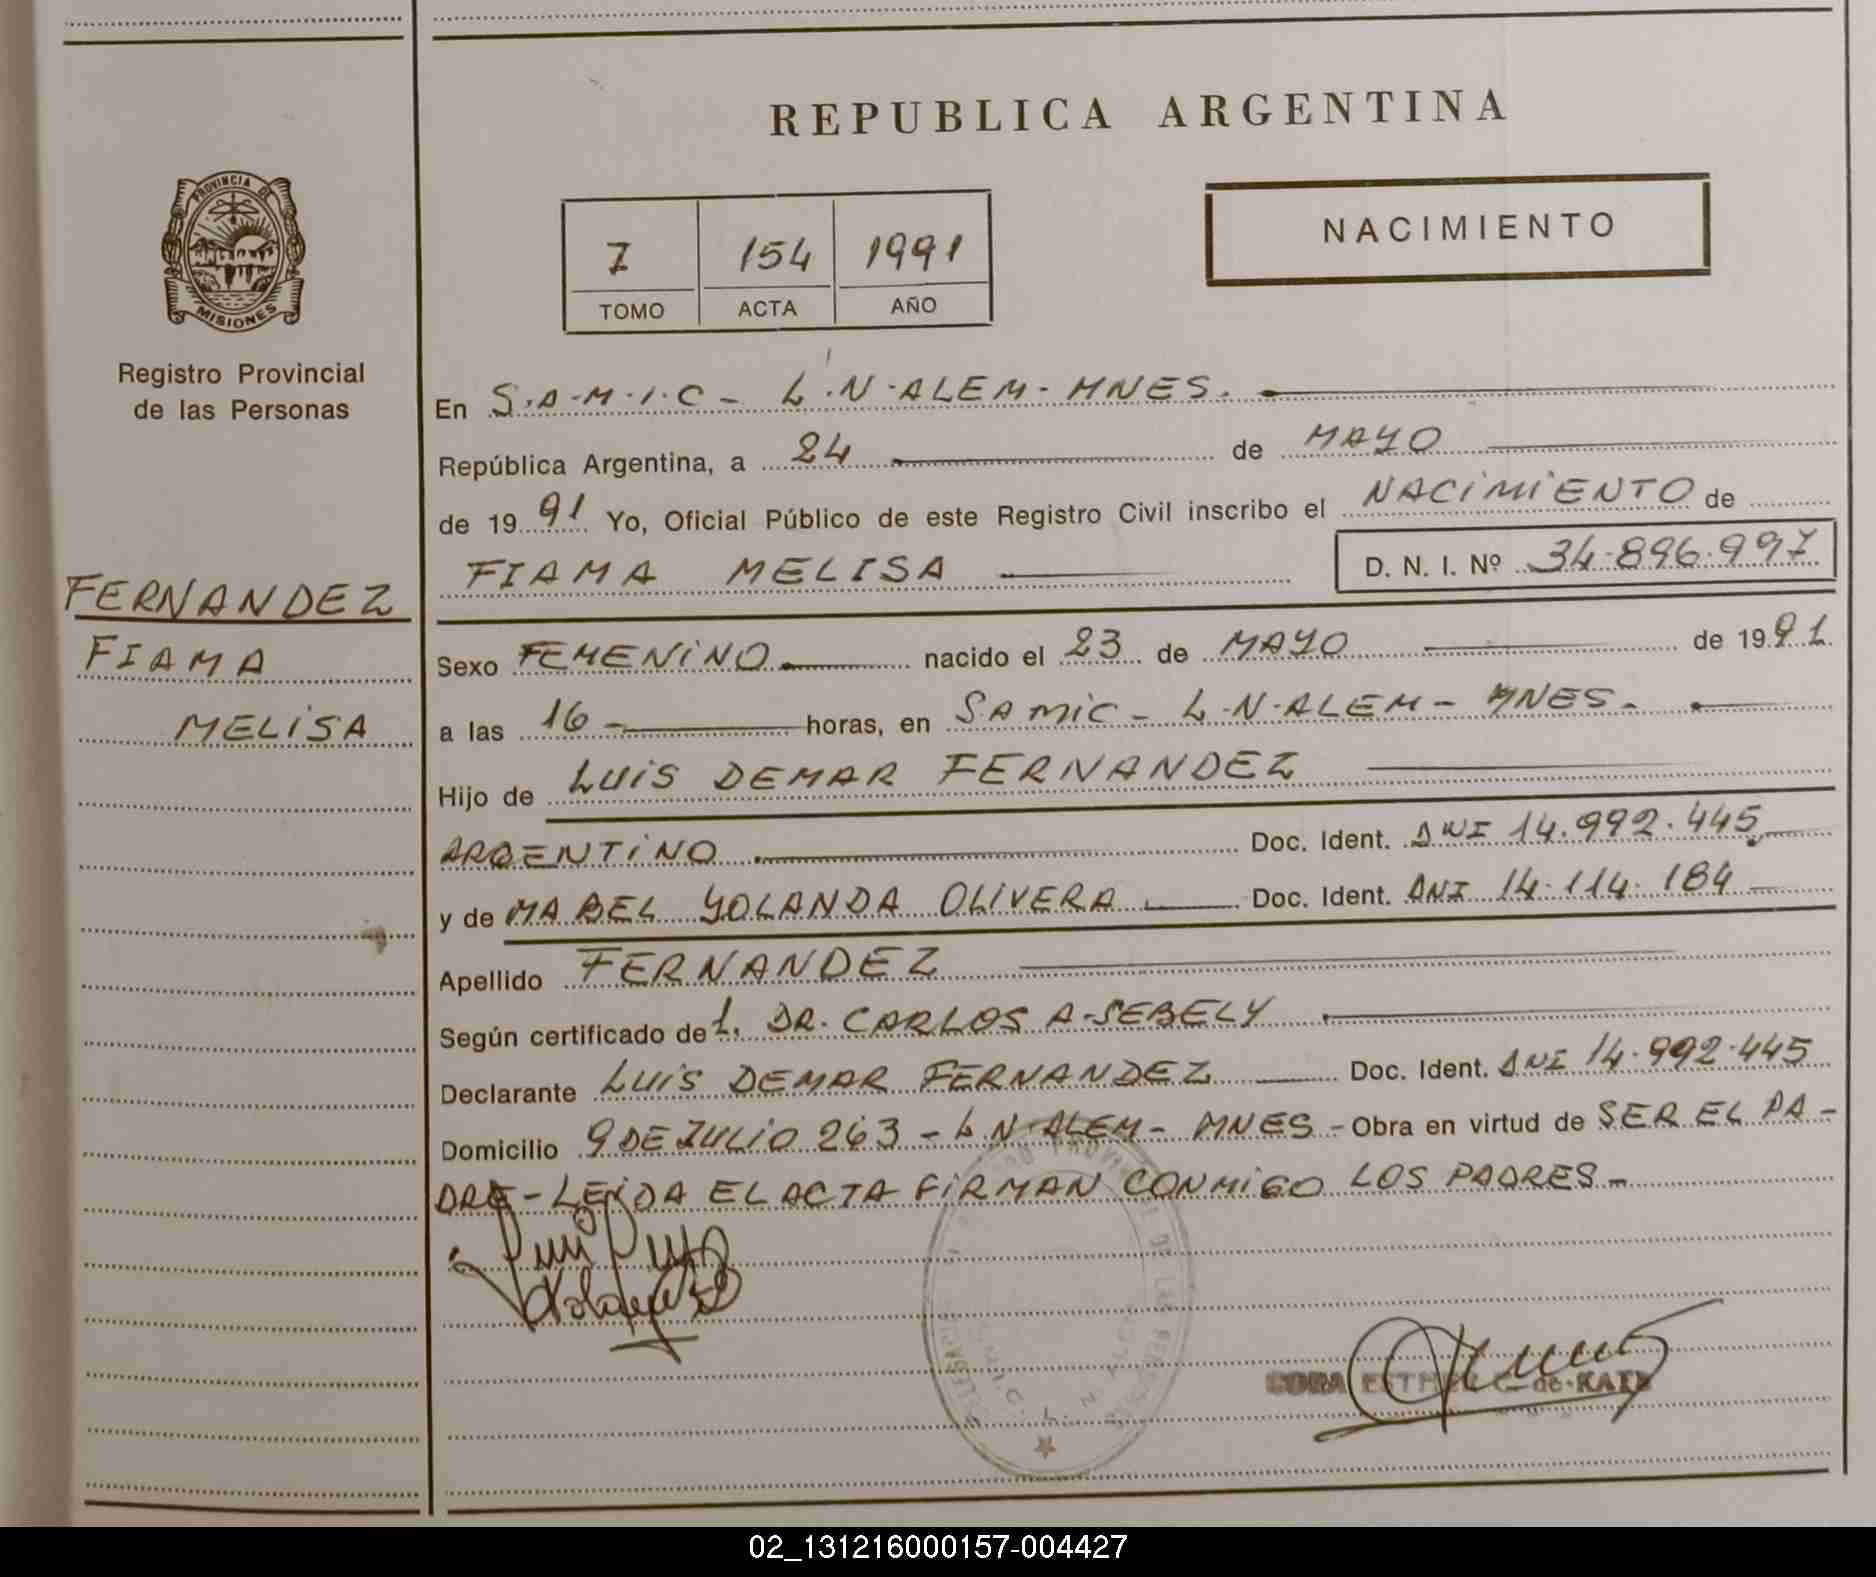 REPUBLICA ARGENTINA
PROVINCIA DE
MISIONES
Registro Provincial
de las Personas
7 154 1991
TOMO ACTA AÑO
NACIMIENTO
En S.A.M.I.C - L.N.ALEM - MNES.
República Argentina, a 24 de MAYO
de 1991 Yo, Oficial Público de este Registro Civil inscribo el NACIMIENTO de
FIAMA MELISA D. N. I. Nº 34.896.997
FERNANDEZ
FIAMA
MELISA
Sexo FEMENINO nacido el 23 de MAYO de 1991.
a las 16 - horas, en SAMIC - L.N.ALEM - MNES.
Hijo de LUIS DEMAR FERNANDEZ
ARGENTINO Doc. Ident. DNI 14.992.445
y de MABEL YOLANDA OLIVERA Doc. Ident. DNI 14.114.184
Apellido FERNANDEZ
Según certificado del. DR. CARLOS A. SEBELY
Declarante LUIS DEMAR FERNANDEZ Doc. Ident. DNI 14.992.445
Domicilio 9 DE JULIO 263 - L.N.ALEM - MNES - Obra en virtud de SER EL PA-
DRE - LEIDA EL ACTA FIRMAN CONMIGO LOS PADRES -
ESTHER C. de KATZ
02_131216000157-004427